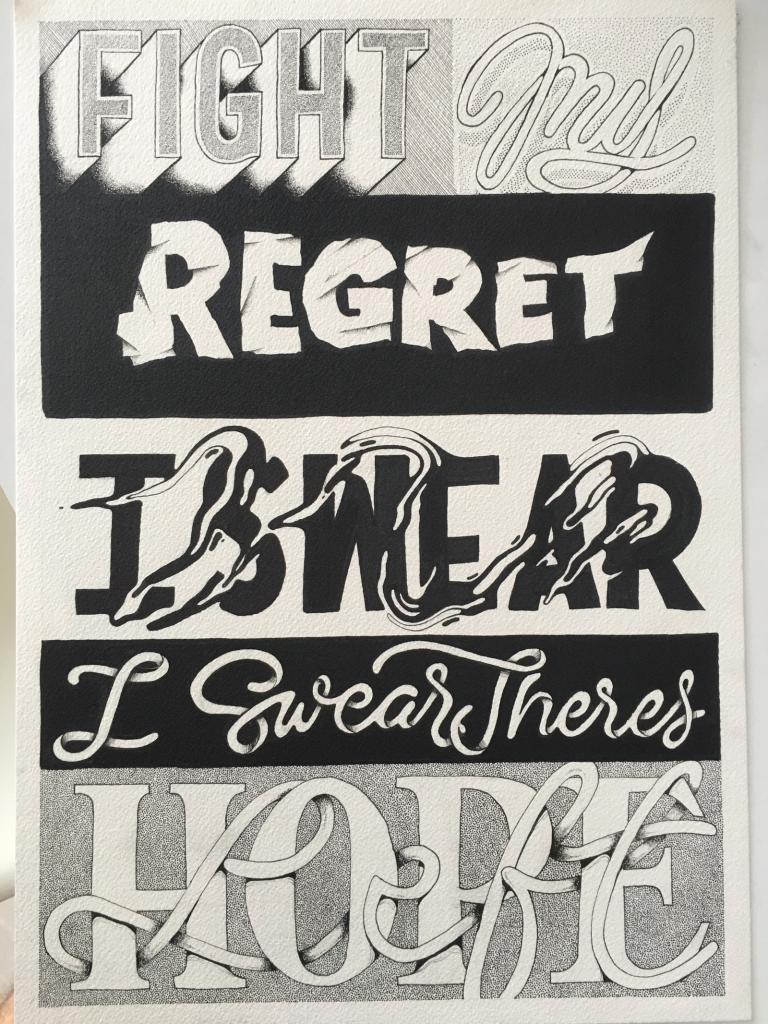 FIGHT my
REGRET
I SWEAR
I Swear Theres
HOPE
Left